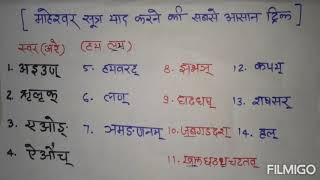 [ माहेश्वर सूत्र याद करने की सबसे आसान ट्रिक ]
स्वर
1. अइउण्
2. ऋलृक्
3. एओङ्
4. ऐऔच्
5. हयवरट्
6. लण्
7. ञमङणनम्
8. झभञ्
9. घढधष्
10. जबगडदश्
11. खफछठथचटतव्
12. कपय्
13. शषसर्
14. हल्
FILMIGO